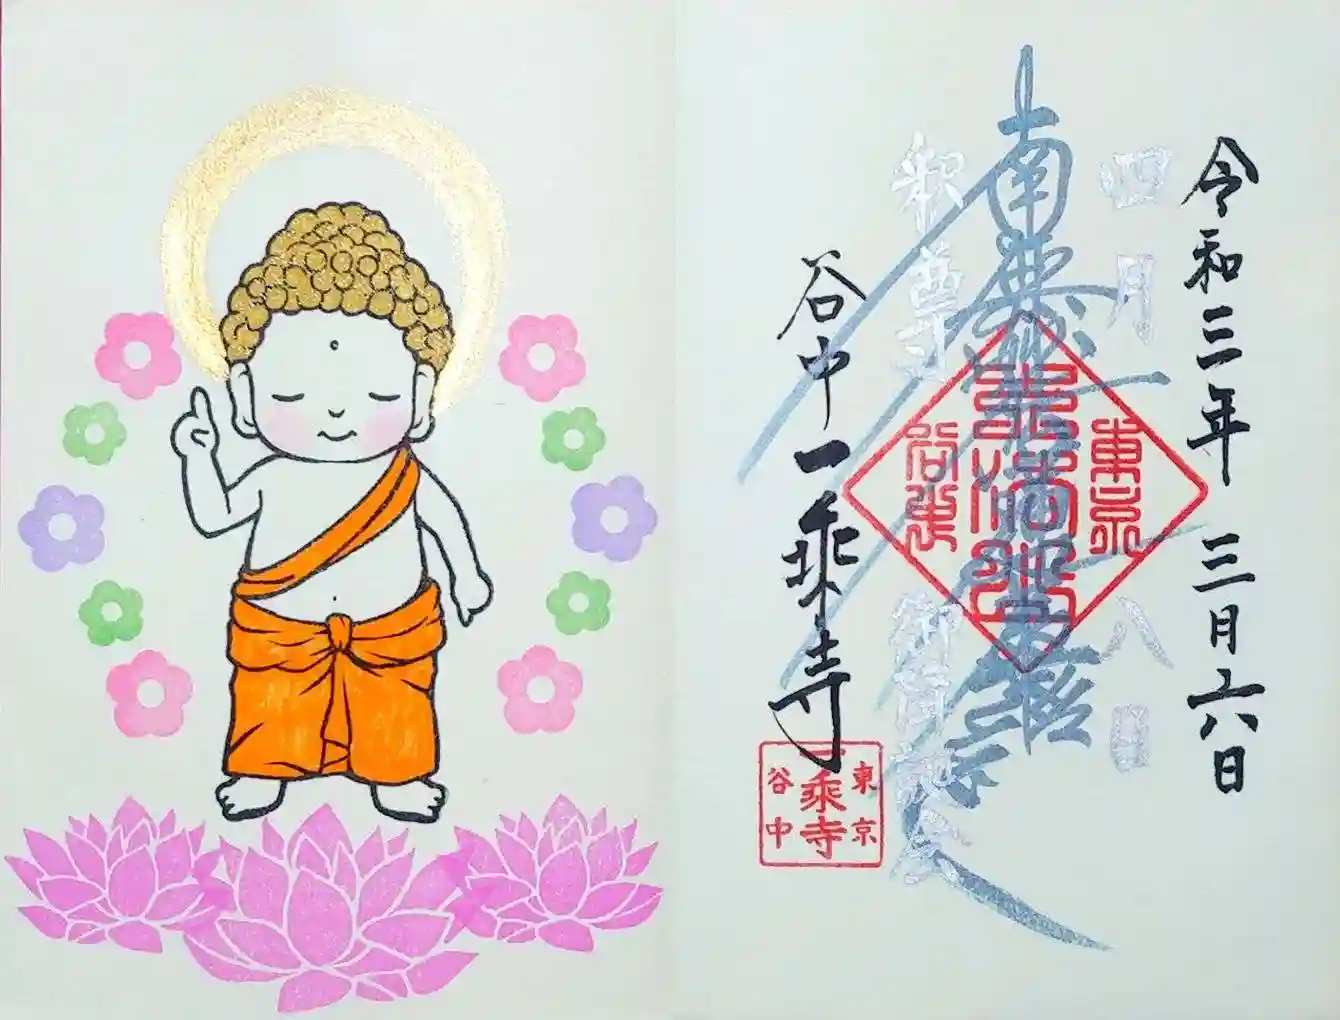 令和三年 三月六日
四月八日
南無妙法蓮華経
釈尊御降誕会
谷中 一乗寺
東京
谷中
東京
一乗寺
谷中